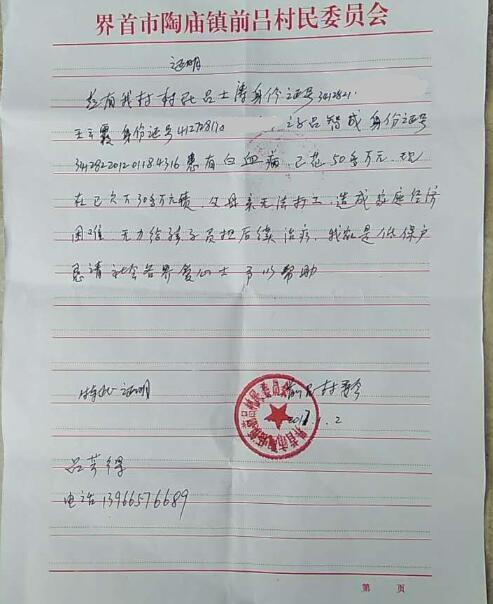 界首市陶庙镇前吕村民委员会
证明
兹有我村村民吕士涛身份证号3412821
王云霞身份证号412728170 之子吕智成身份证号
341282201201184316患有白血病，已花50多万元，现
在已欠下30多万元债，父母亲无法打工，造成家庭经济
困难 无力给孩子负担后续治疗，我家是低保户
恳请社会各界爱心士予以帮助
特此证明
前吕村委会
2017.1.2
吕芳
电话13966576689
第 页